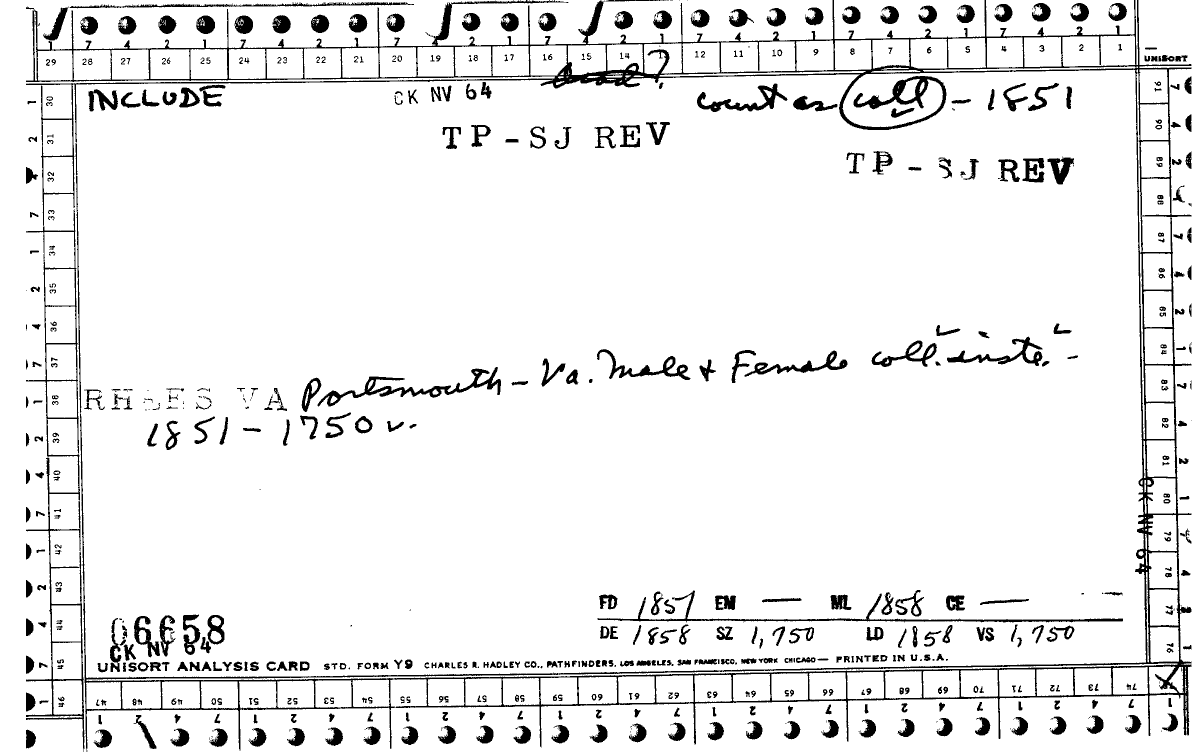 7 4 2 1 7 4 2 1 7 4 2 1 7 4 2 1 7 4 2 1 7 4 2 1 7 4 2 1
29 28 27 26 25 24 23 22 21 20 19 18 17 16 15 14 13 12 11 10 9 8 7 6 5 4 3 2 1
UNISORT
INCLUDE CK NV 64 ? count as coll - 1851
TP-SJ REV
TP-SJ REV
RHEES VA Portsmouth - Va. Male & Female coll. inste. -
1851 - 1750 v.
CK NV 64
FD 1851 EM — ML 1858 CE —
DE 1858 SZ 1,750 LD 1858 VS 1,750
06658
CK NV 64
UNISORT ANALYSIS CARD STD. FORM Y9 CHARLES R. HADLEY CO., PATHFINDERS, LOS ANGELES, SAN FRANCISCO, NEW YORK CHICAGO — PRINTED IN U.S.A.
30 31 32 33 34 35 36 37 38 39 40 41 42 43 44 45 46
47 48 49 50 51 52 53 54 55 56 57 58 59 60 61 62 63 64 65 66 67 68 69 70 71 72 73 74
76 77 78 79 80 81 82 83 84 85 86 87 88 89 90 91